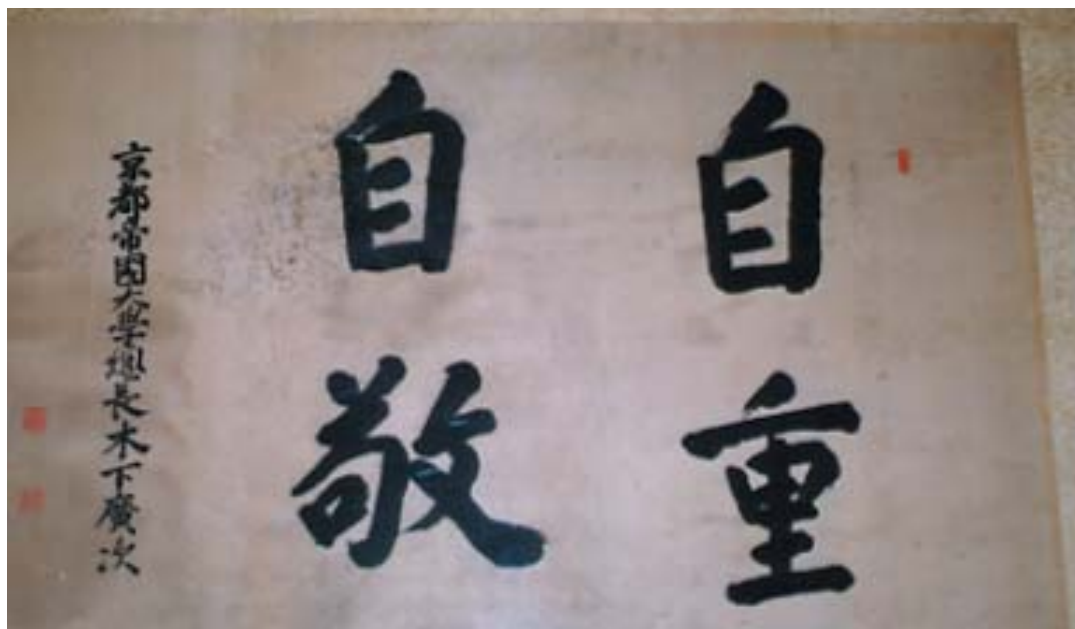 自重
自敬
京都帝国大学総長木下廣次